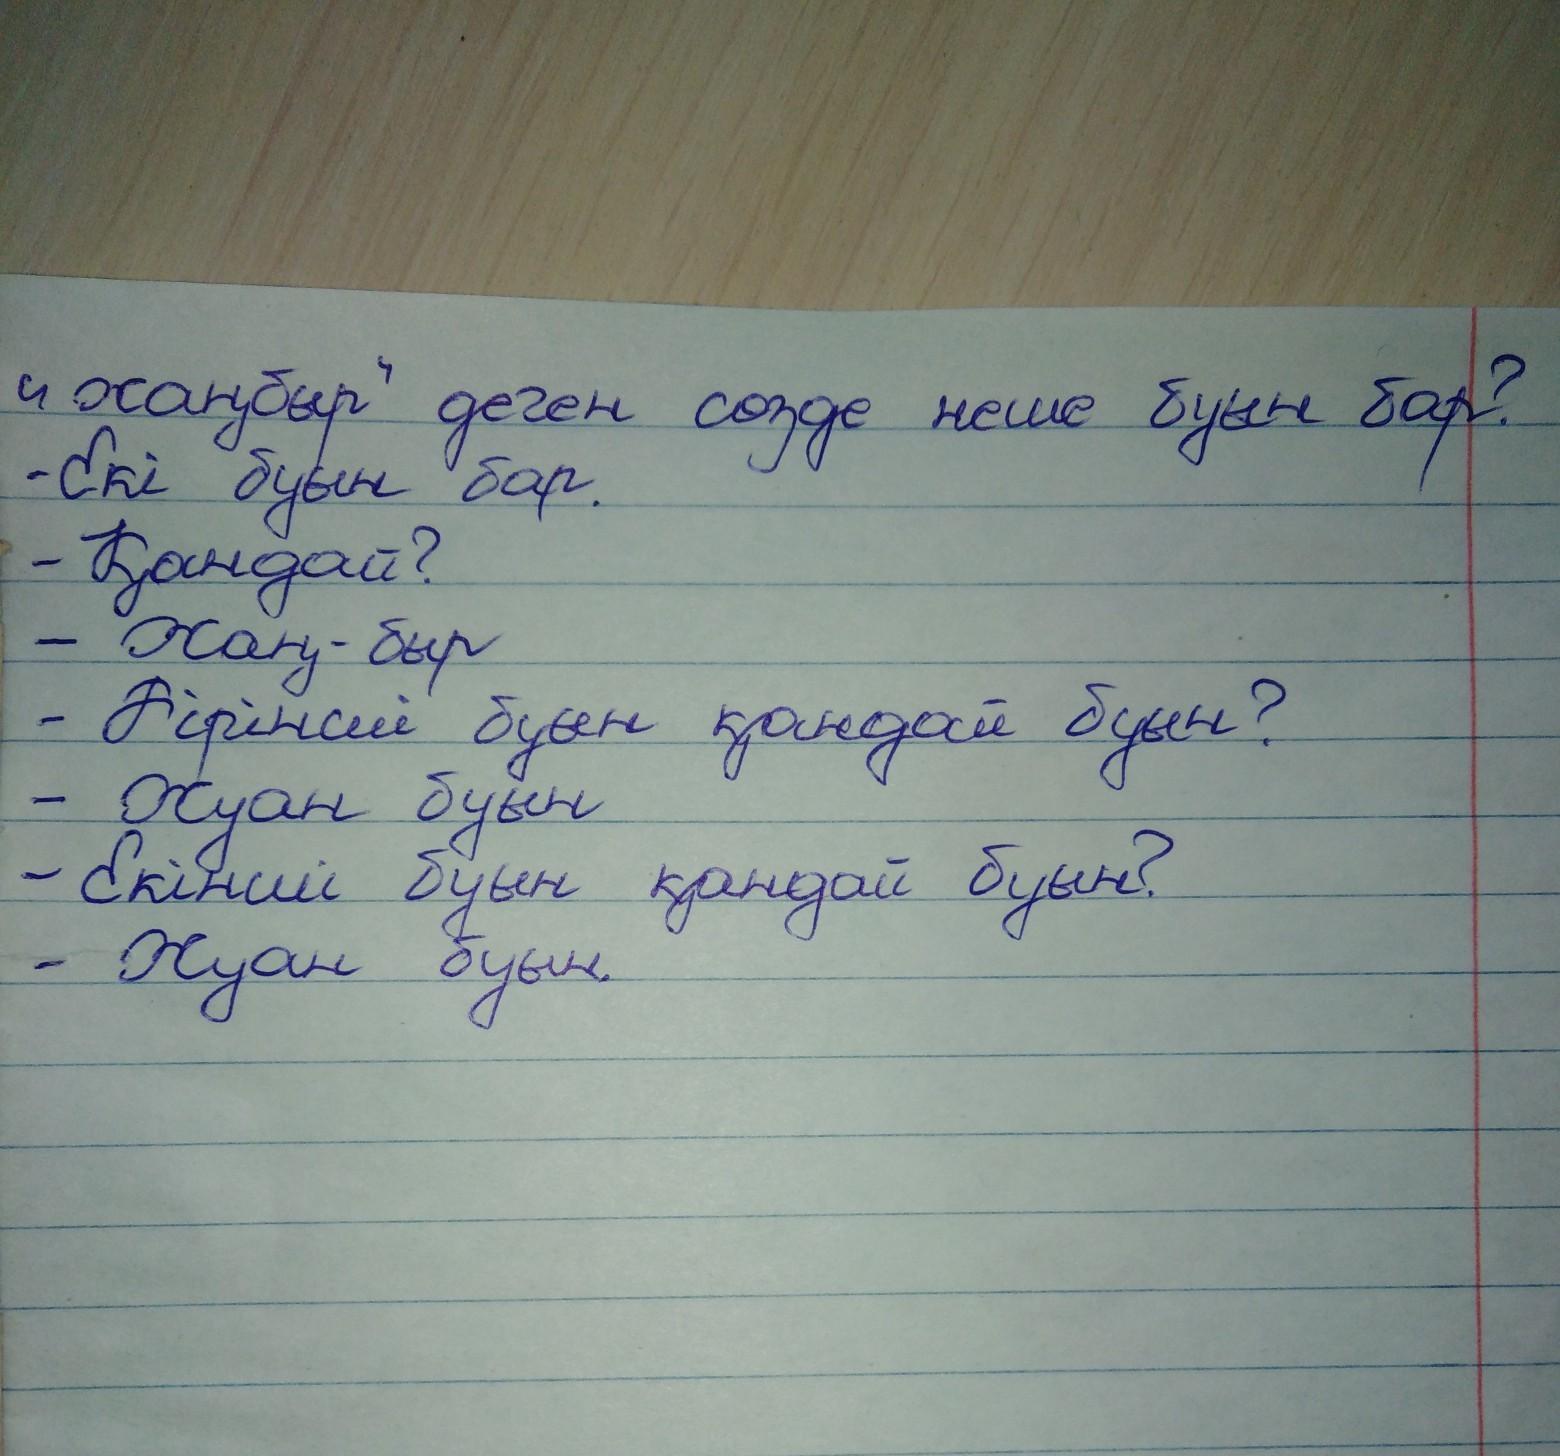 "жаңбыр" деген созде неше буын бар?
-Екі буын бар.
- Қандай?
- Жаң-быр
- Бірінші буын қандай буын?
- Жуан буын
- Екінші буын қандай буын?
- Жуан буын.